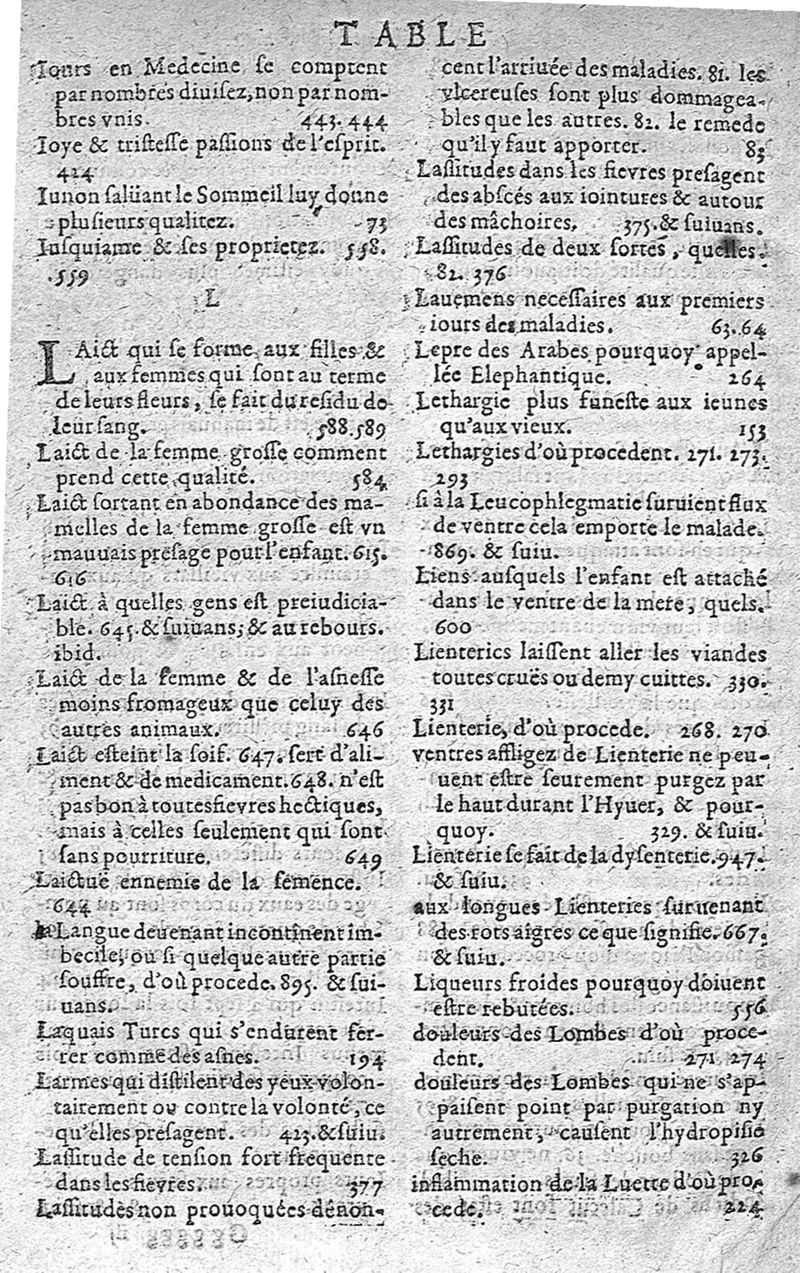 TABLE
Iours en Medecine se comptent
par nombres diuisez, non par nom-
bres vnis. 443. 444
Ioye & tristesse passions de l'esprit.
424
Iunon salüant le Sommeil luy donne
plusieurs qualitez. 73
Iusquiame & ses proprietez. 558.
559
L
LAict qui se forme aux filles &
aux femmes qui sont au terme
de leurs fleurs, se fait du residu de
leur sang. 588. 589
Laict de la femme grosse comment
prend cette qualité. 584
Laict sortant en abondance des ma-
melles de la femme grosse est vn
mauuais presage pour l'enfant. 615.
616
Laict à quelles gens est preiudicia-
ble. 645. & suiuans, & au rebours.
ibid.
Laict de la femme & de l'asnesse
moins fromageux que celuy des
autres animaux. 646
Laict esteint la soif. 647. sert d'ali-
ment & de medicament. 648. n'est
pas bon à toutes fievres hectiques,
mais à celles seulement qui sont
sans pourriture. 649
Laictuë ennemie de la semence.
644
la Langue deuenant incontinent im-
becile, ou si quelque autre partie
souffre, d'où procede. 895. & sui-
uans.
Laquais Turcs qui s'endurent fer-
rer comme des asnes. 194
Larmes qui distilent des yeux volon-
tairement ou contre la volonté, ce
qu'elles presagent. 423. & suiu.
Lassitude de tension fort frequente
dans les fievres. 377
Lassitudes non prouoquées dénon-
cent l'arriuée des maladies. 81. les
vlcereuses sont plus dommagea-
bles que les autres. 82. le remede
qu'il y faut apporter. 83
Lassitudes dans les fievres presagent
des abscés aux iointures & autour
des mâchoires. 375. & suiuans.
Lassitudes de deux sortes, quelles.
82. 376
Lauemens necessaires aux premiers
iours des maladies. 63. 64
Lepre des Arabes pourquoy appel-
lée Elephantique. 264
Lethargie plus funeste aux ieunes
qu'aux vieux. 153
Lethargies d'où procedent. 271. 273.
293
si à la Leucophlegmatie suruient flux
de ventre cela emporte le malade.
869. & suiu.
Liens ausquels l'enfant est attaché
dans le ventre de la mere, quels.
600
Lienterics laissent aller les viandes
toutes cruës ou demy cuittes. 330.
331
Lienterie, d'où procede. 268. 270
ventres affligez de Lienterie ne peu-
uent estre seurement purgez par
le haut durant l'Hyuer, & pour-
quoy. 329. & suiu.
Lienterie se fait de la dysenterie. 947.
& suiu.
aux longues Lienteries suruenant
des rots aigres ce que signifie. 667.
& suiu.
Liqueurs froides pourquoy doiuent
estre rebutées. 556
douleurs des Lombes d'où proce-
dent. 271 274
douleurs des Lombes qui ne s'ap-
paisent point par purgation ny
autrement, causent l'hydropisie
seche. 326
inflammation de la Luette d'où pro-
cede. 224